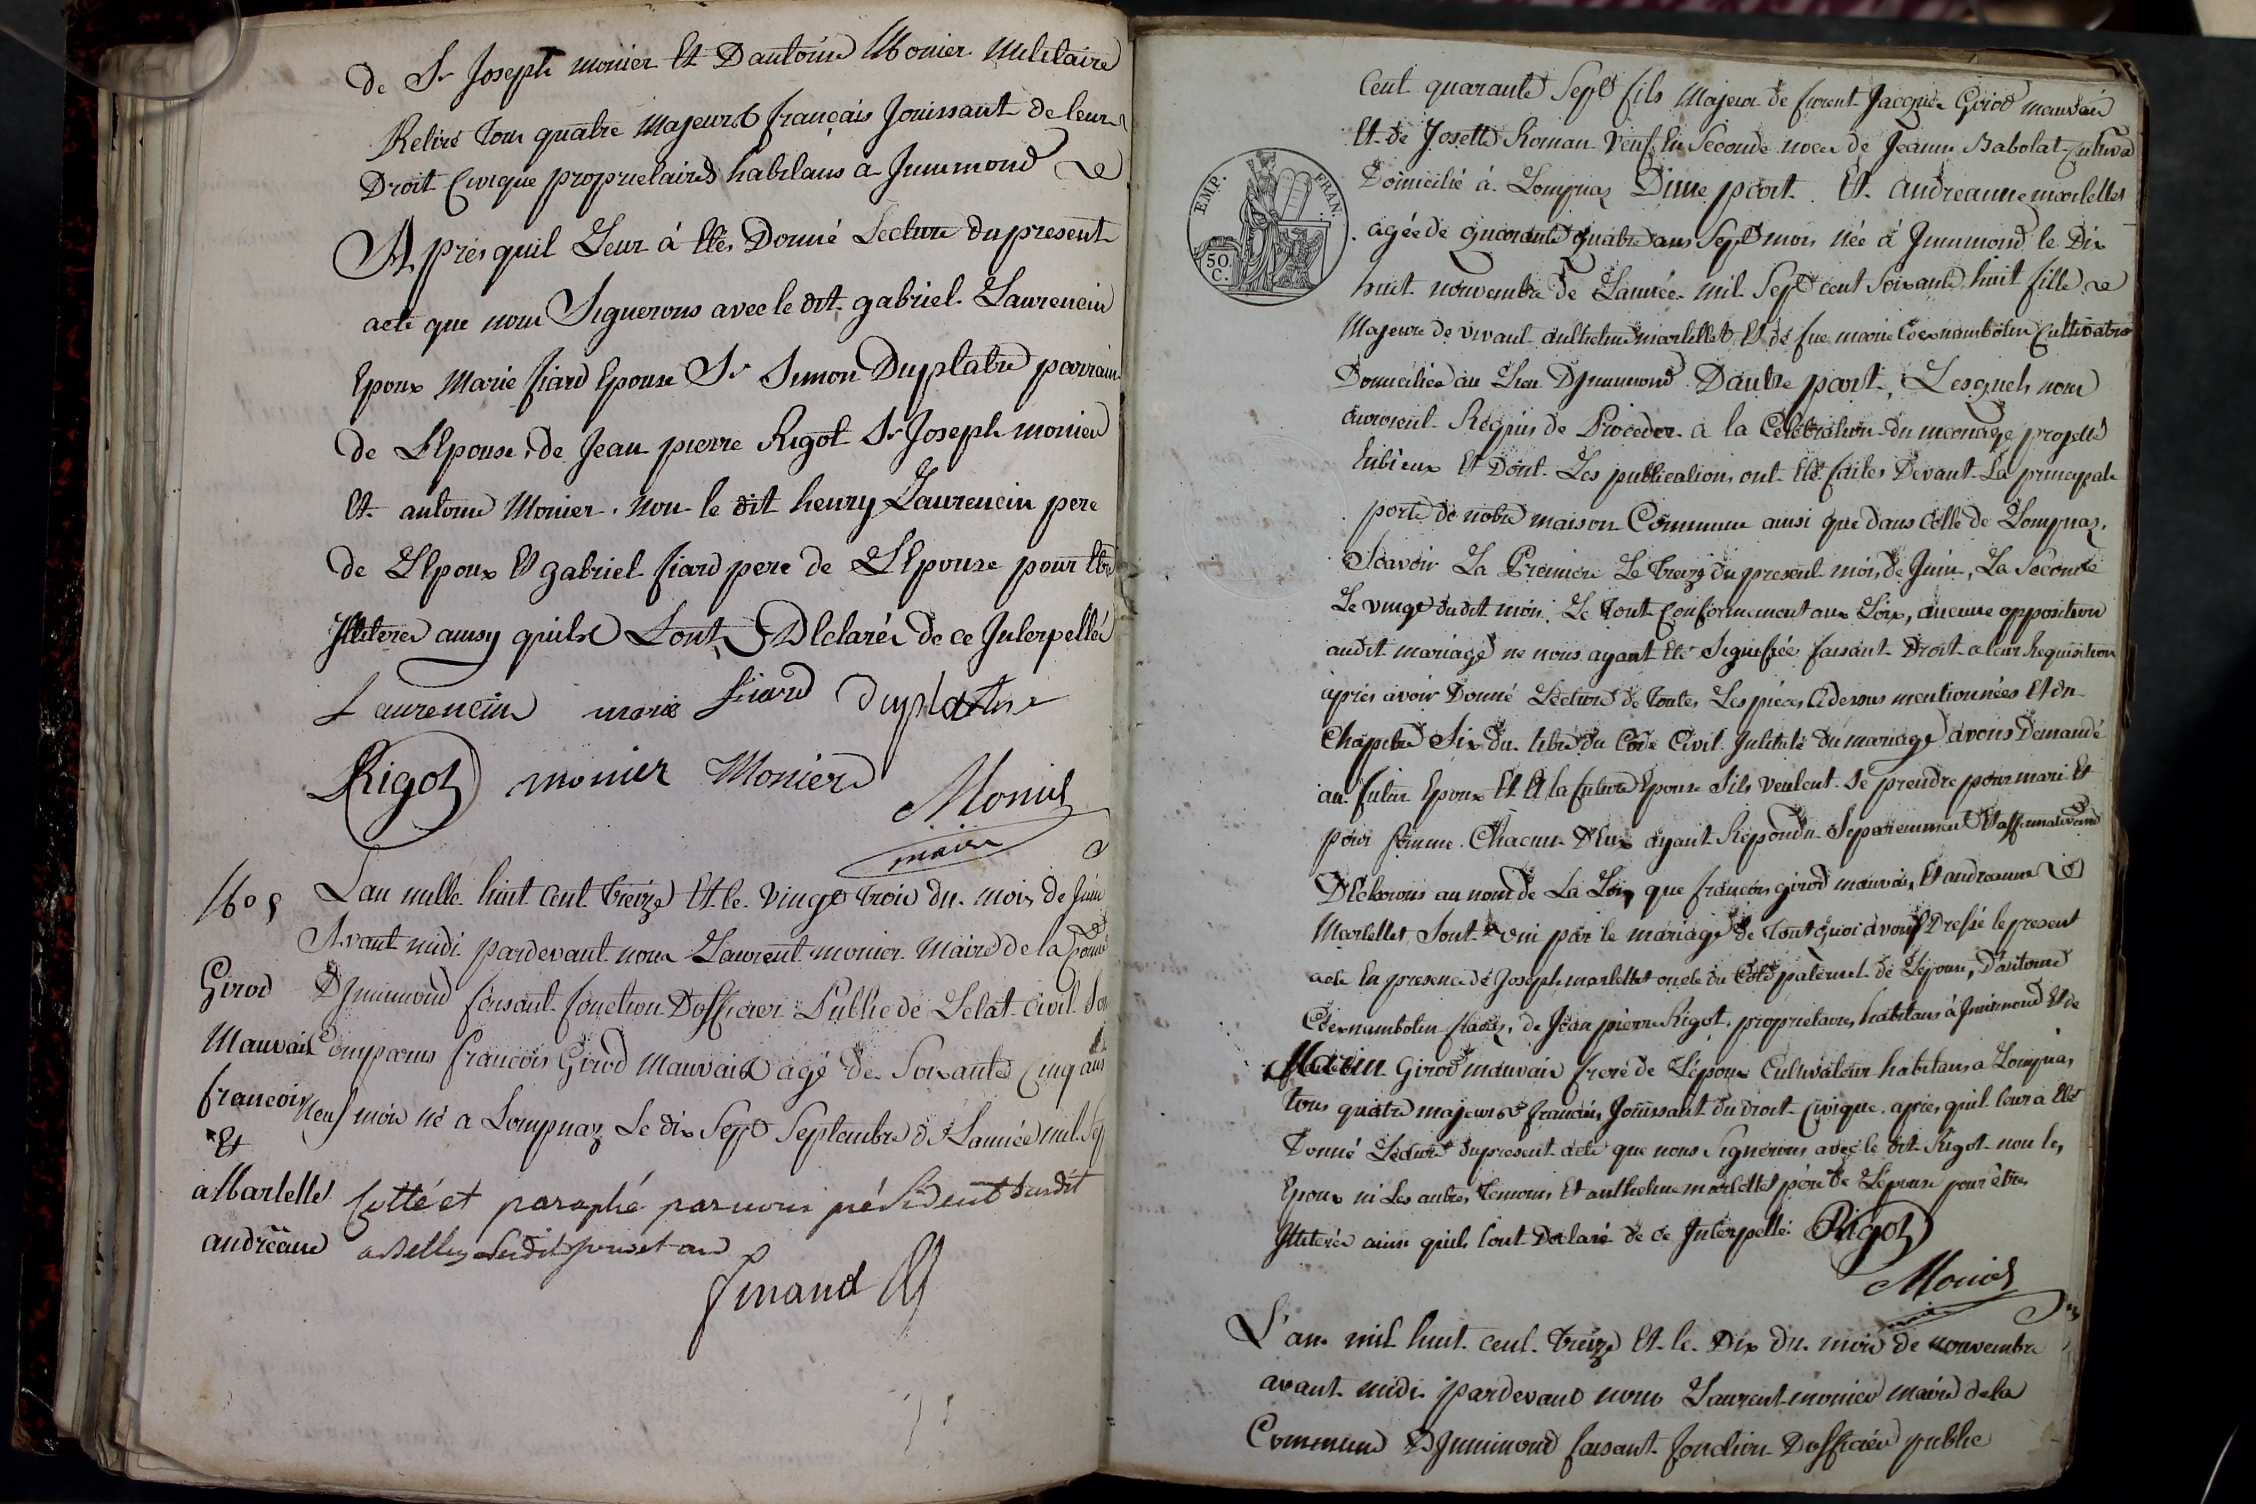 de Sr Joseph monier Et Dantoine Monier Militaire
Retiré Tous quatre Majeurs français Jouissant de leurs
Droit Civique proprietaires habitans a Jnnimond
Après quil Leur á Eté Donné Lecture du present
acte que nous Signerons avec le dit gabriel Laurencin
Epoux Marie fiard Epouse Sr Simon Duplatre parrain
de L'Epouse, de Jean pierre Rigot Sr Joseph monier
Et antoine Monier, non le dit henry Laurencin pere
de L'Epoux Et gabriel fiard pere de L'Epouse pour Etre
Jlliterés ainsy quils Lont Déclarés de ce Jnterpellés
Laurencin marie fiard Duplatre
Rigot monier Monier
Monier
maire
Girod
Mauvais
francois
Et
Martellet
andréanne
L'an mille huit cent treize Et le vingt trois du mois de Juin
Avant midi pardevant nous Laurent monier Maire de la Comne
DJnnimond faisant fonction Dofficier Public de Letat Civil Son
Comparus francois Girod Mauvais agé de Soixante Cinq ans
Neuf mois né a Lompnaz Le dix Sept Septembre de Lannée mil Sep
Cotté et paraphé par nous président dudit
a Belley
Cent quarante Sept fils Majeur de florent Jacques Girod mauvais
Et de Josette Roman veuf En Seconde noces de Jeanne Babolat Cultiva
Domicilié à Lompnaz D'une part. Et andreanne martellet
EMP. FRAN.
50 C.
agée de quarante quatre ans Sept mois née á Jnnimond le Dix
huit novembre de Lannée mil Sept cent Soixante huit fille
Majeure de vivant anthelme martellet Et de fue marie Coexnambotin Cultivatrice
Domiciliée au Lieu DJnnimond D'autre part, Lesquels nous
auroient Requis de Proceder a la Célébration du mariage projetté
Entr'eux Et Dont Les publications ont Eté faites Devant La principale
porte de notre maison Commune ainsi que dans Celle de Lompnaz,
Scavoir La Premiere Le treize du present mois de Juin, La Seconde
Le vingt dudit mois. Le Tout Conformement aux Loix, aucune opposition
audit mariage ne nous ayant Eté Signifiée faisant Droit a leur Requisition
après avoir Donné Lecture de Toutes Les pièces Cidessus mentionnées Et du
Chapitre Six du titre du Code Civil Jntitulé du mariage avons Demandé
au futur Epoux Et A la future Epouse Sils veulent Se prendre pour mari Et
pour femme. Chacun D'Eux ayant Répondu Séparément Et affirmativemt
Déclarons au nom de La Loix que francois girod mauvais, Et andreanne
Martellet Sont uni par le mariage de Tout quoi avons Dressé le present
acte En presence de Joseph martellet oncle du Coté paternel de L'épouse, D'antoine
Coexnambotin de Jean pierre Rigot, proprietaires habitans à Jnnimond Et de
Marin Girod mauvais frere de L'époux Cultivateur habitans a Lompnas
tous quatre majeurs français Jouissant du droit Civique. après quil leur a Eté
Donné Lecture du present acte que nous Signerons avec le dit Rigot non les
Epoux ni Les autres Temoins Et anthelme martellet pére de L'epouse pour être
Jlliterés ainsi quils lont Déclaré de ce Jnterpellé. Rigot
Monier
L'an mil huit cent treize Et le Dix du mois de nonvembre
avant midi pardevant nous Laurent monier maire de la
Commune DJnnimond faisant fonction Dofficier public